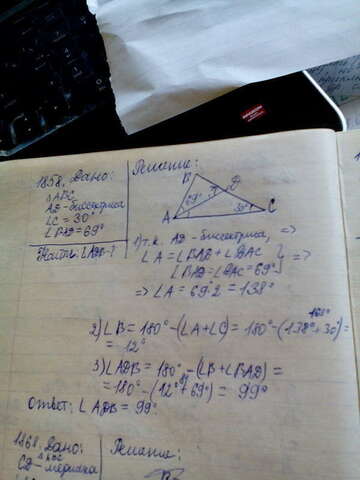 1858. Дано:
△ABC
AD - биссектриса
∠C = 30°
∠BAD = 69°
Найти: ∠ADB - ?
Решение:
B
D
69°
?
30°
A
C
1) т.к. AD - биссектриса, =>
∠A = ∠BAD + ∠DAC
∠BAD = ∠DAC = 69°
} =>
=> ∠A = 69°·2 = 138°
168°
2) ∠B = 180° - (∠A + ∠C) = 180° - (138° + 30°) =
= 12°
3) ∠ADB = 180° - (∠B + ∠BAD) =
81
= 180° - (12° + 69°) = 99°
Ответ: ∠ADB = 99°.
1868. Дано:
△ABC
CD - медиана
Решение:
B